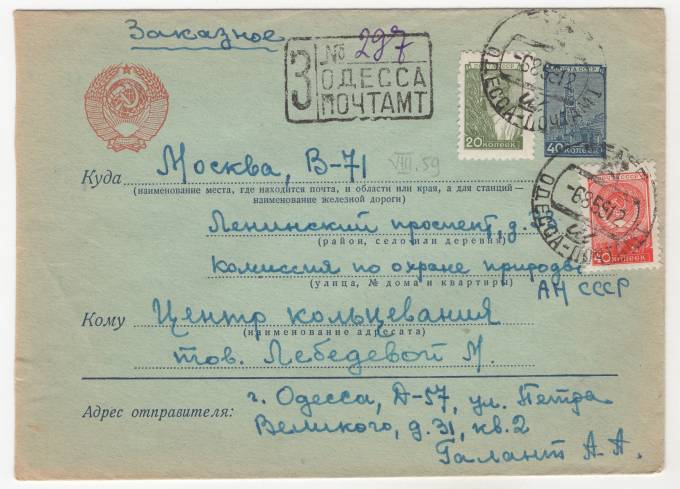 Заказное
З
№ 297
ОДЕССА
ПОЧТАМТ
20 копеек
40 копеек
VIII.59
Куда Москва, В-71
(наименование места, где находится почта, и области или края, а для станций —
наименование железной дороги)
Ленинский проспект, д. 33
(район, село или деревня)
комиссия по охране природы
(улица, № дома и квартиры)
АН СССР
40 копеек
Кому Центр кольцевания
(наименование адресата)
тов. Лебедевой М.
Адрес отправителя: г. Одесса, Д-57, ул. Петра
Великого, д. 31, кв. 2
Галант А. А.